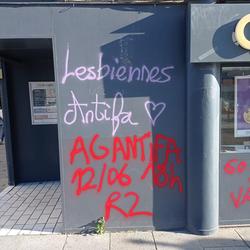 Lesbiennes
Antifa ♡
AG ANTIFA
12/06 18h
R2